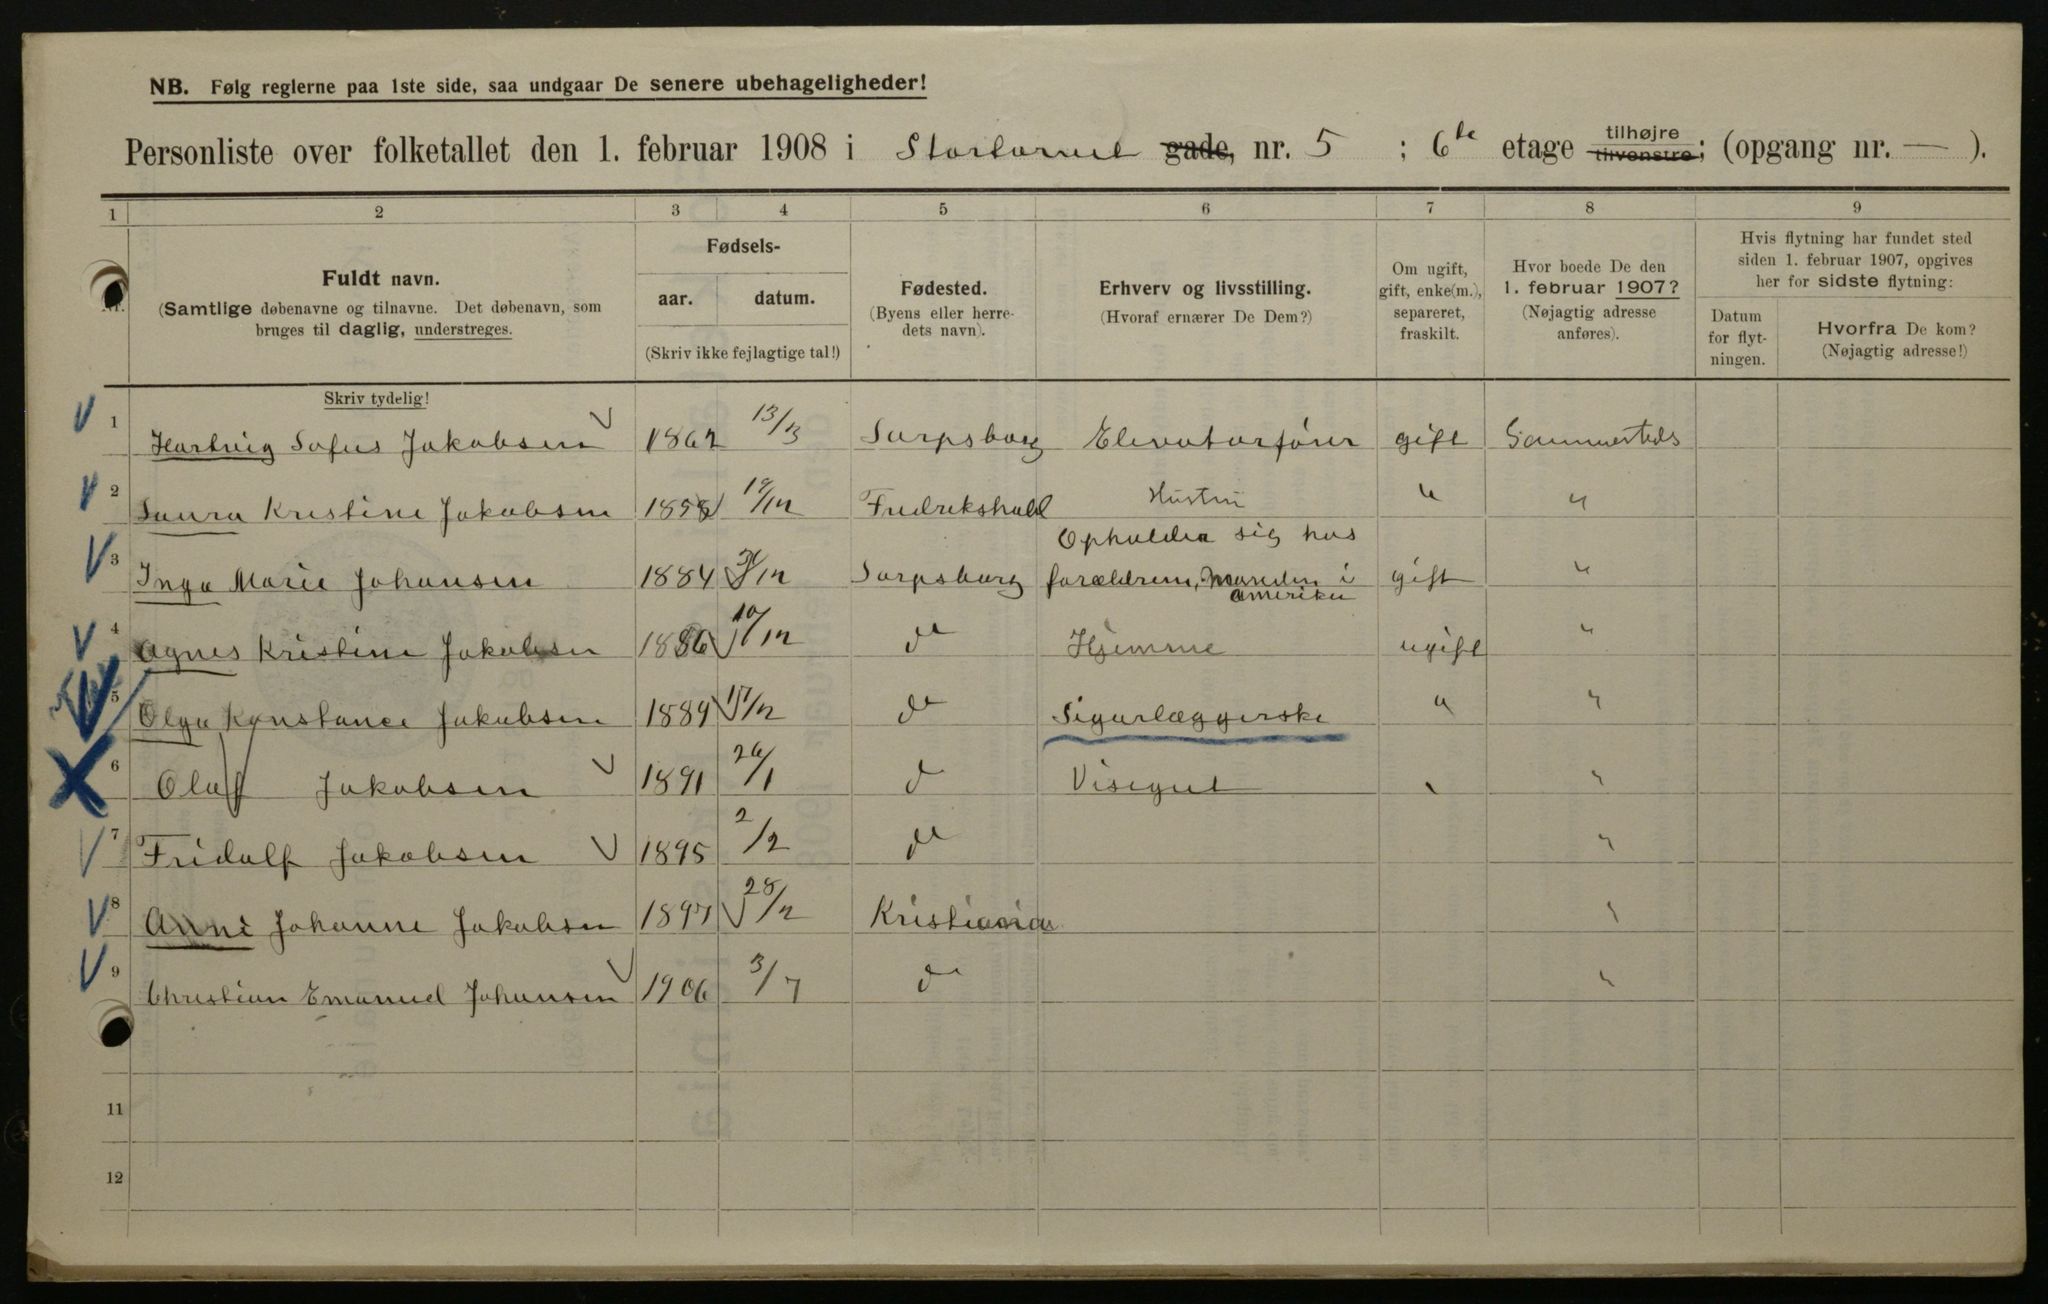 NB. Følg reglerne paa 1ste side, saa undgaar De senere ubehageligheder!
Personliste over folketallet den 1. februar 1908 i Stortorvet gade, nr. 5 ; 6te etage tilhøjre tilvenstre; (opgang nr. — ).
1 2 3 4 5 6 7 8 9
Nr.
Fuldt navn.
(Samtlige døbenavne og tilnavne. Det døbenavn, som
bruges til daglig, understreges.
Fødsels-
aar. datum.
(Skriv ikke fejlagtige tal!)
Fødested.
(Byens eller herre-
dets navn).
Erhverv og livsstilling.
(Hvoraf ernærer De Dem?)
Om ugift,
gift, enke(m.),
separeret,
fraskilt.
Hvor boede De den
1. februar 1907?
(Nøjagtig adresse
anføres).
Hvis flytning har fundet sted
siden 1. februar 1907, opgives
her for sidste flytning:
Datum
for flyt-
ningen.
Hvorfra De kom?
(Nøjagtig adresse!)
Skriv tydelig!
1 Hartvig Sofus Jakobsen 1862 13/3 Sarpsborg Elevatorfører gift Sammesteds
2 Laura Kristine Jakobsen 1858 19/12 Fredrikshald Hustru " "
3 Inga Marie Johansen 1884 /12 Sarpsborg Opholder sig hos
forældrene, Manden i
Amerika gift "
4 Agnes Kristine Jakobsen 1886 10/12 do Hjemme ugift "
5 Olga Konstance Jakobsen 1889 17/12 do Sigarlæggerske " "
6 Olaf Jakobsen 1891 26/1 do Visegut " "
7 Fridolf Jakobsen 1895 2/2 do "
8 Anne Johanne Jakobsen 1897 28/2 Kristiania "
9 Christian Emanuel Johansen 1906 3/7 do "
11
12